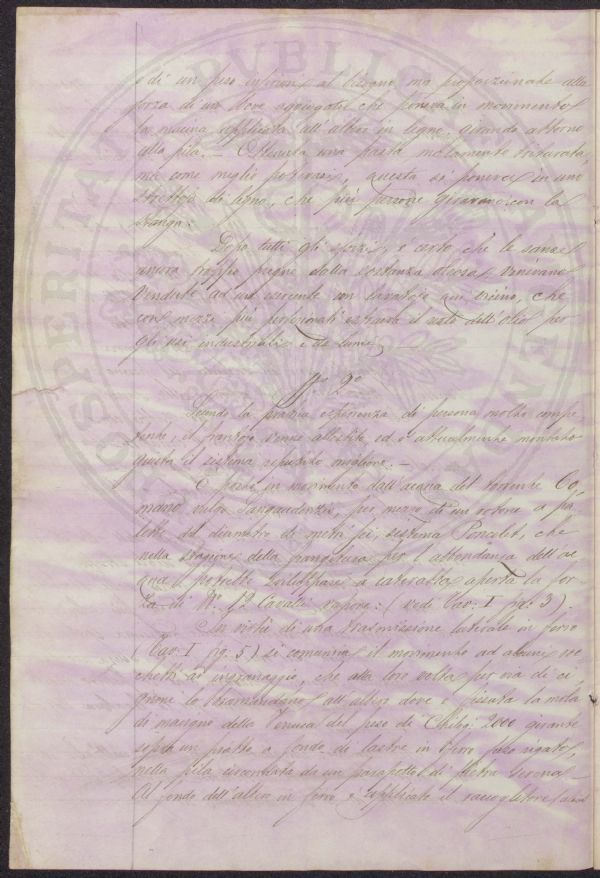 e di un peso inferiore al bisogno, ma proporzionale alla
forza di un bove aggiogato che poneva in movimento
la macina applicata all'albero in legno, girando attorno
alla pila. — Ottenuta una pasta malamente triturata
ma come meglio potevasi, questa si poneva in uno
strettojo di legno, che più persone giravano con la
stanga.
Dopo tutti gli sforzi, è certo che le sanse
ancora troppo pregne dalla sostanza oleosa venivano
vendute ad un esercente un lavatojo qui vicino, che
con mezzi più perfezionati estraeva il resto dell'olio per
gli usi industriali e da lume.
N.º 2º
Secondo la pratica esperienza di persona molto compe
tente, il frantojo venne allestito ed è attualmente montato
giusta il sistema reputato migliore. —
È posto in movimento dall'acqua del torrente Co,
mano vulgo, per mezzo di un rotone a pa,
lette del diametro di metri sei, sistema Poncelet, che
nella stagione della frangitura per l'abbondanza dell'ac
qua potrebbe sviluppare a cateratta aperta la for
za di N. 12 Cavalli vapore: (vedi Tav: I fig: 3).
In virtù di una trasmissione laterale in ferro
(Tav: I fig. 5) si comunica il movimento ad alcuni roc
chetti ad ingranaggio, che alla loro volta per via di ci,
gnone lo trasmettono all'albero dove è fissata la mola
di macigno della Verruca del peso di Chilog: 2000 girante
sopra un piatto a fondo di lastre in ferro fuso rigato,
nella pila, circondata da un parapetto di Pietra Serena
Al fondo dell'albero in ferro è applicato il raccoglitore